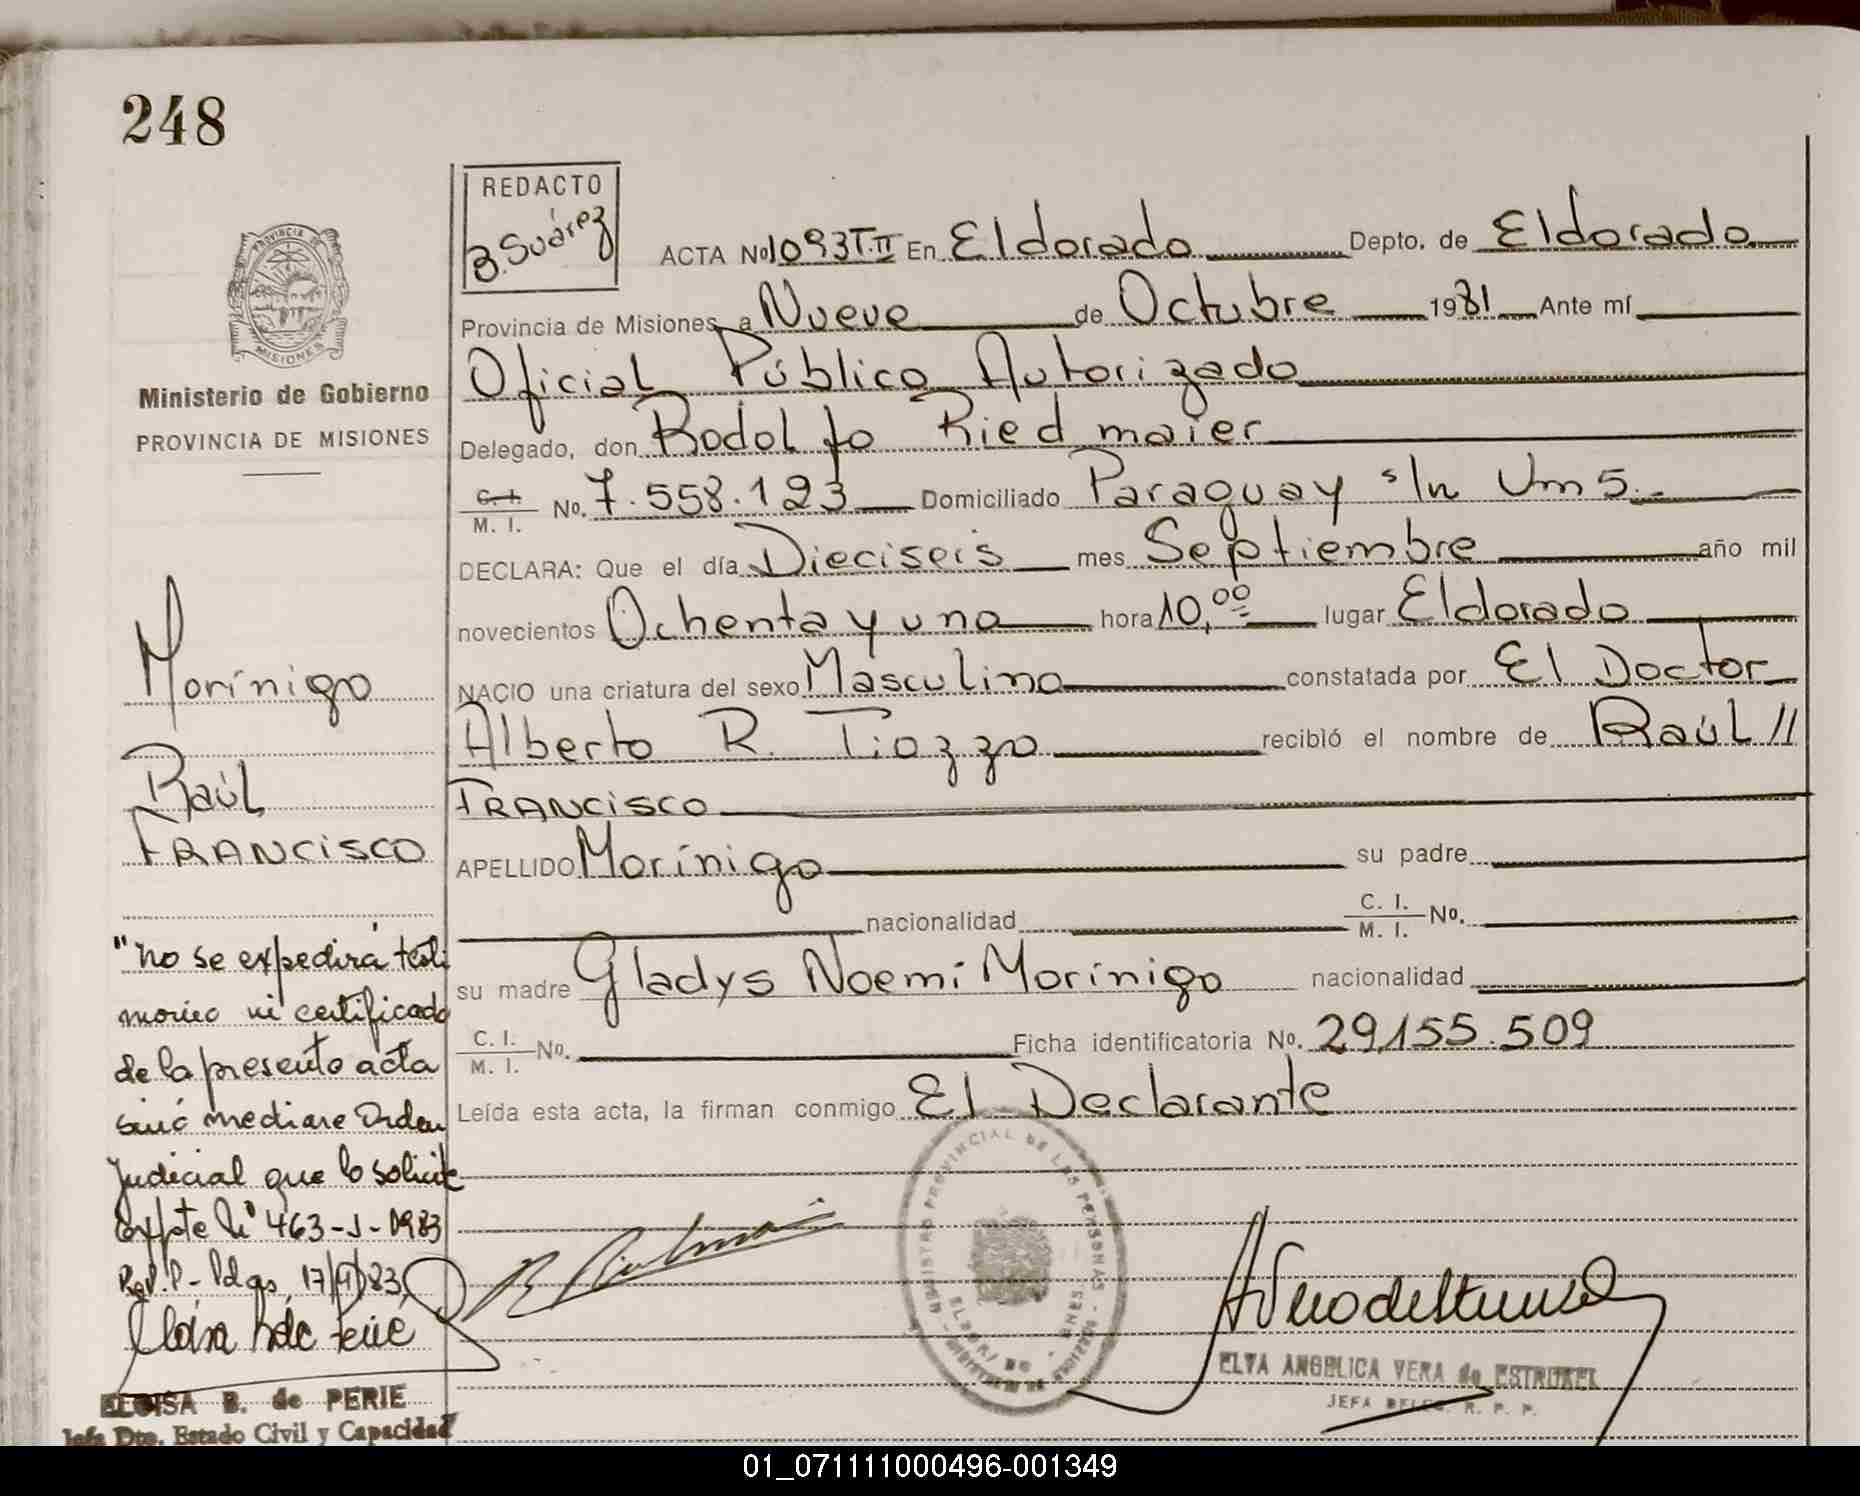 248
REDACTO
B. Suárez
PROVINCIA DE
MISIONES
Ministerio de Gobierno
PROVINCIA DE MISIONES
ACTA Nº 1093 T.II En Eldorado Depto. de Eldorado
Provincia de Misiones a Nueve de Octubre 1981 Ante mí
Oficial Público Autorizado
Delegado, don Rodolfo Riedmaier
C. I. M. I. No. 7.558.123 Domiciliado Paraguay s/n Um 5.-
DECLARA: Que el día Dieciseis mes Septiembre año mil
novecientos Ochenta y uno hora 10,00 lugar Eldorado
NACIO una criatura del sexo Masculino constatada por El Doctor
Alberto R. Tiozzo recibió el nombre de Raúl //
FRANCISCO
APELLIDO Morínigo su padre
nacionalidad C. I. M. I. No.
su madre Gladys Noemí Morínigo nacionalidad
C. I. M. I. No. Ficha identificatoria No. 29.155.509
Leída esta acta, la firman conmigo El Declarante
Morínigo
Raúl
FRANCISCO
"No se expedirá testi
monio ni certificado
de la presente acta
sinó mediare Orden
Judicial que lo solicite
Expte Nº 463-J-1983
17/ /83
ELOISA B. de PERIE
Jefa Dto. Estado Civil y Capacidad
REGISTRO PROVINCIAL DE LAS PERSONAS
ELDORADO
MISIONES
ELVA ANGELICA VERA de ESTRUKEL
JEFA DELEG. R. P. P.
01_071111000496-001349